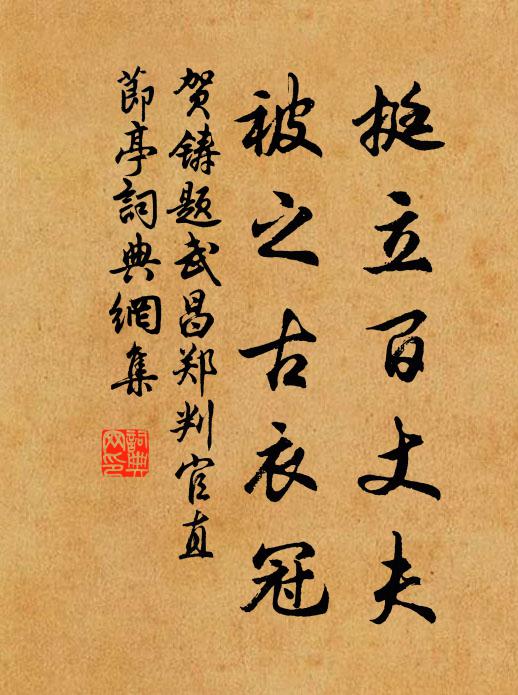 挺立百丈夫
被之古衣冠
贺铸题武昌郑判官直
節亭詞典網集
詞典
网印